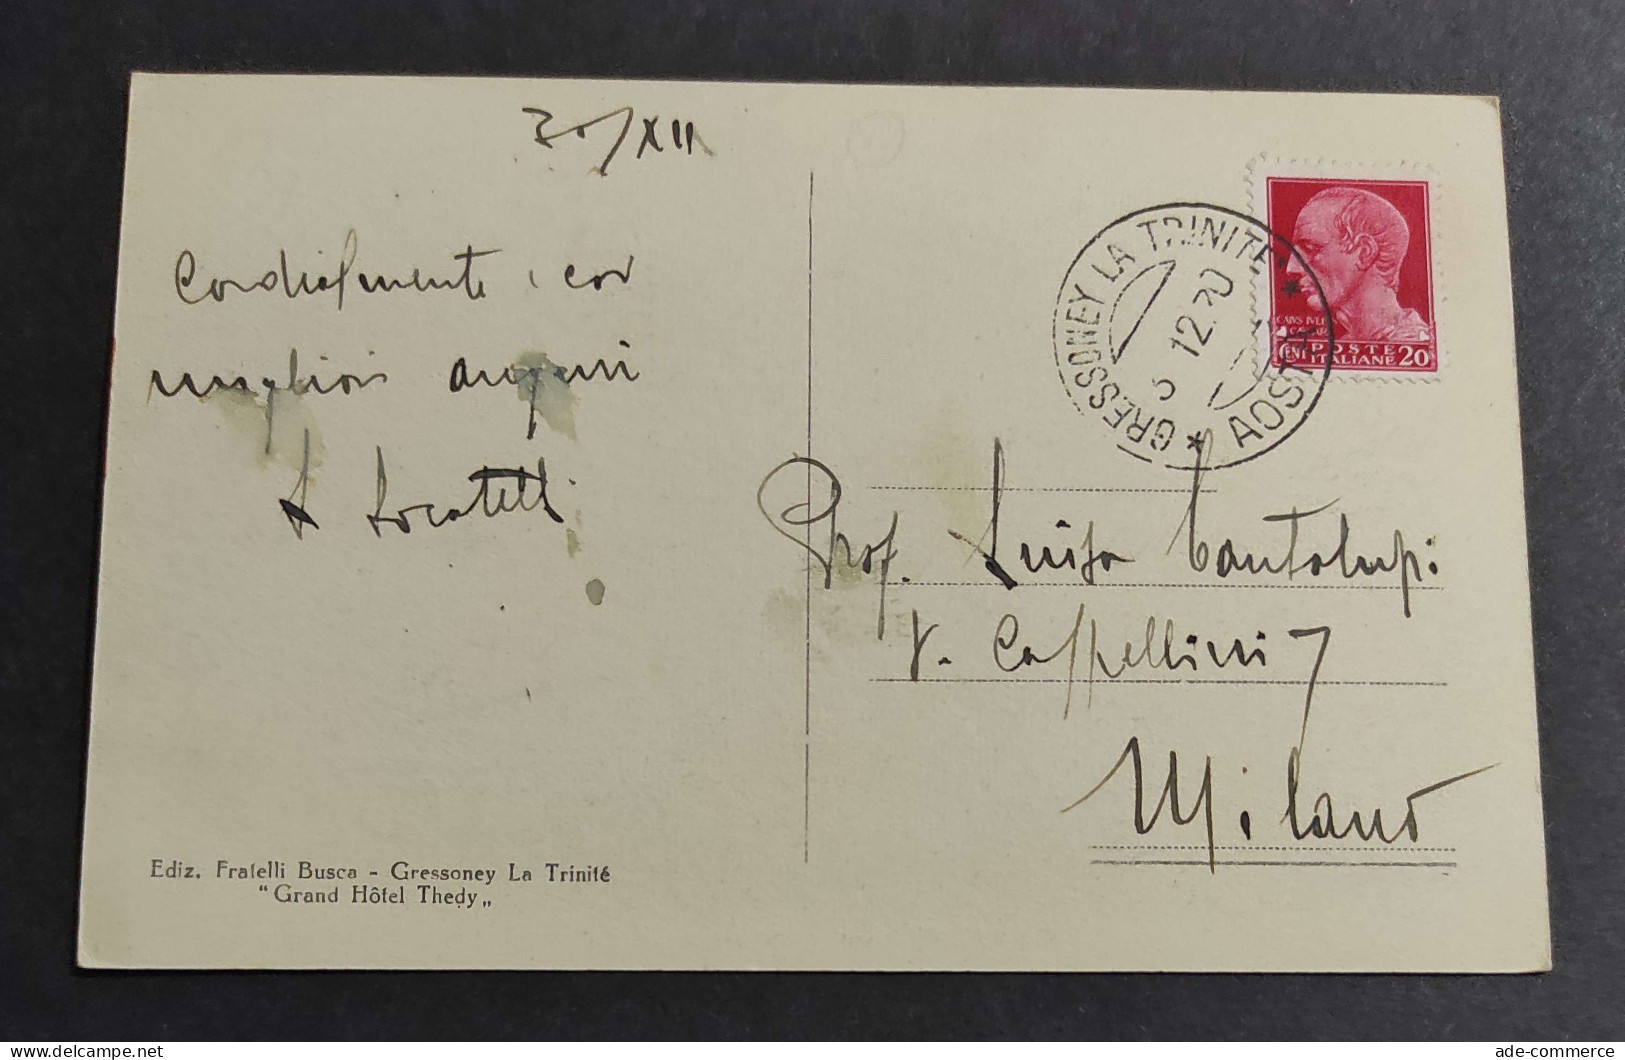 30/XII
Cordialmente, coi
migliori auguri
A Locatelli
Ediz. Fratelli Busca - Gressoney La Trinité
“Grand Hôtel Thedy„
GRESSONEY LA TRINITE'
* AOSTA *
12.30
CAIVS IVLI
CAESAR
POSTE
CENT ITALIANE 20
Prof. Luisa Cantalupi
V. Cappellini 7
Milano
ade-commerce